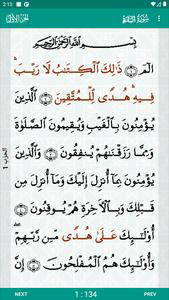 2:13
الجزء الأول
سورة البقرة
بِسْمِ ٱللَّهِ ٱلرَّحْمَٰنِ ٱلرَّحِيمِ
الٓمٓ ۝١ ذَٰلِكَ ٱلْكِتَٰبُ لَا رَيْبَ ۛ
فِيهِ ۛ هُدًى لِّلْمُتَّقِينَ ۝٢ ٱلَّذِينَ
يُؤْمِنُونَ بِٱلْغَيْبِ وَيُقِيمُونَ ٱلصَّلَوٰةَ
وَمِمَّا رَزَقْنَٰهُمْ يُنفِقُونَ ۝٣ وَٱلَّذِينَ
يُؤْمِنُونَ بِمَآ أُنزِلَ إِلَيْكَ وَمَآ أُنزِلَ مِن
قَبْلِكَ وَبِٱلْءَاخِرَةِ هُمْ يُوقِنُونَ ۝٤
أُو۟لَٰٓئِكَ عَلَىٰ هُدًى مِّن رَّبِّهِمْ ۖ
وَأُو۟لَٰٓئِكَ هُمُ ٱلْمُفْلِحُونَ ۝٥
الحزب 1
NEXT
1 : 134
PREV